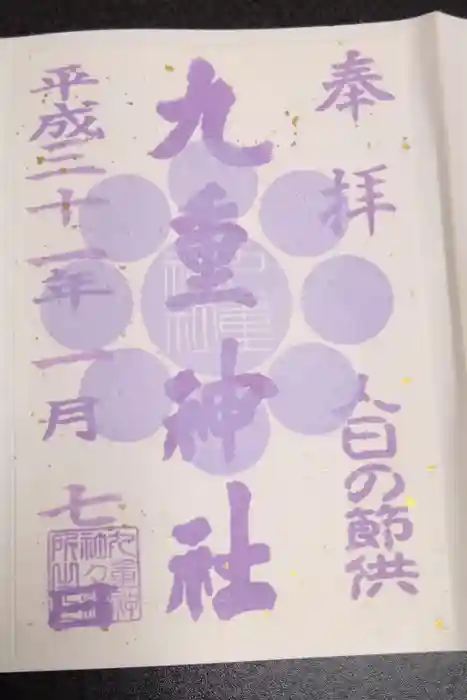 奉拝
人日の節供
九重神社
九重
神社
平成三十一年一月七日